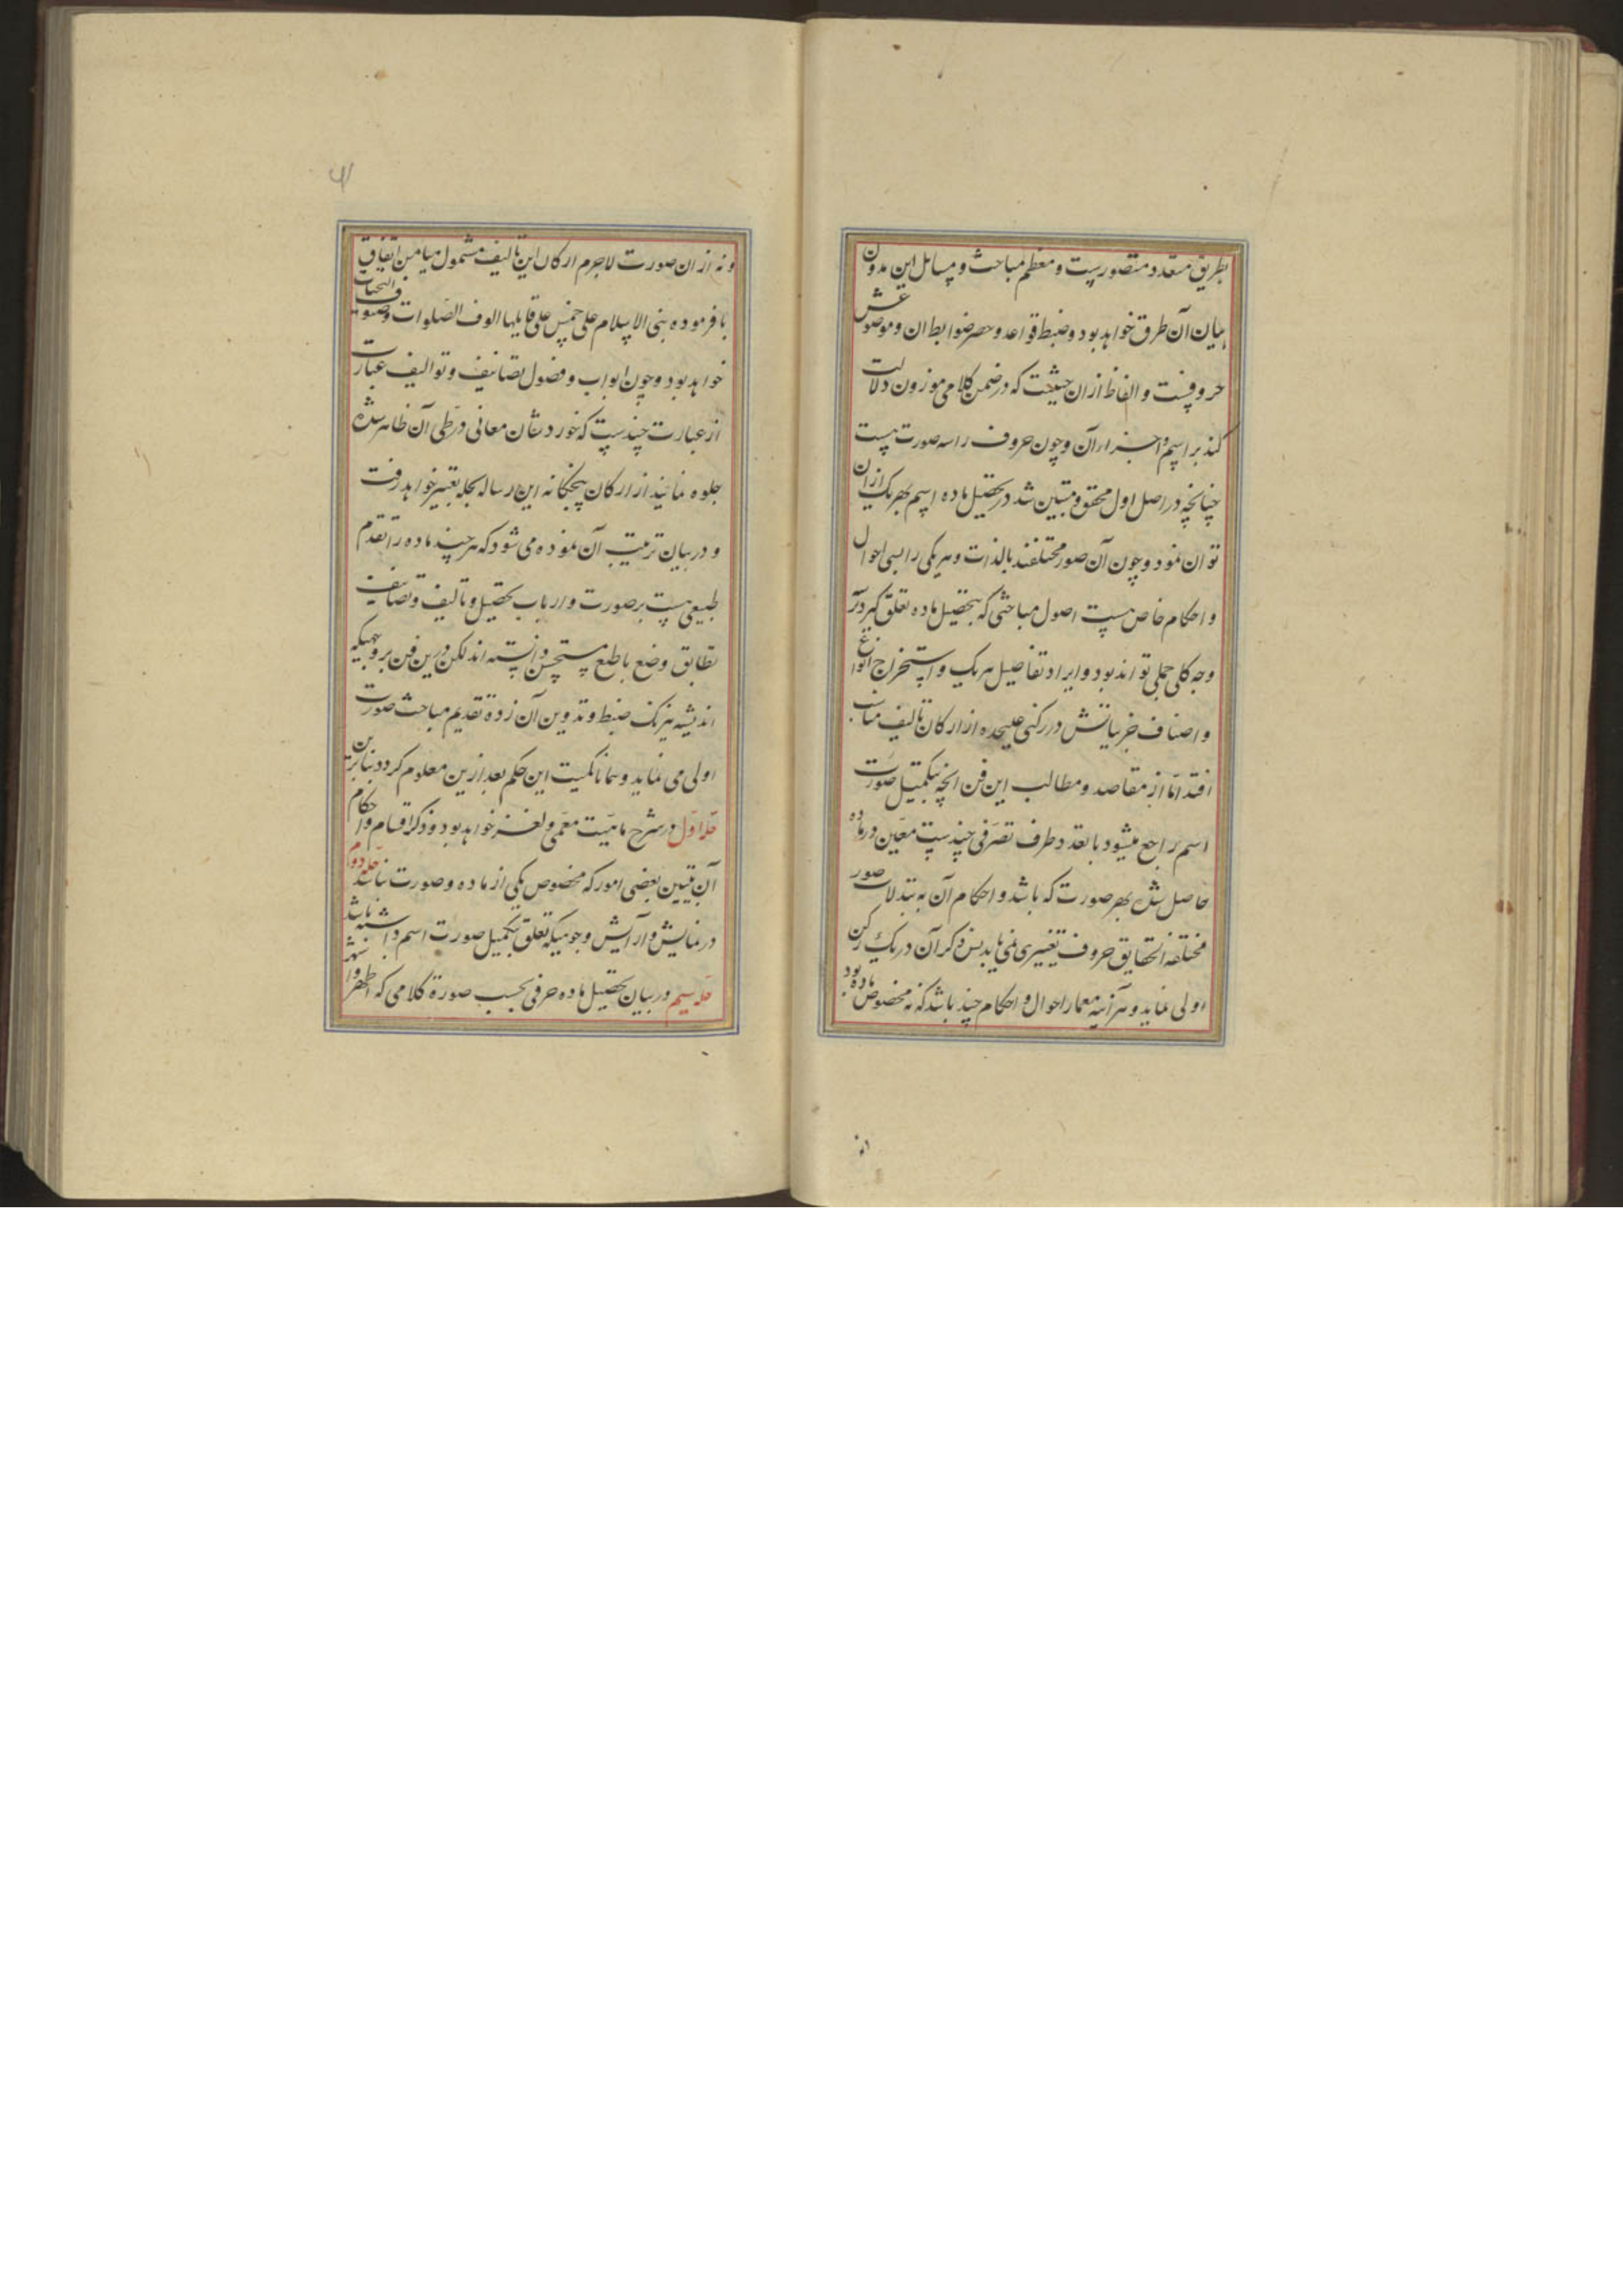 بطریق متعدد متصورست و معظم مباحث و مسایل این مدون
بیان آن طرق خواهد بود و ضبط قواعد و حصر ضوابط ان و موضوعش
حروفست و الفاظ از ان حیثیت که در ضمن کلامی موزون دلالت
کند بر اسم و اجزاء آن و چون حروف را سه صورت هست
چنانچه در اصل اول محقق و مبین شد در تحصیل ماده اسم بهر یک از ان
توان نمود و چون آن صور مختلفند بالذات و هر یکی را بسی احوال
و احکام خاص هست اصول مباحثی که بتحصیل ماده تعلق گیرد بر
وجه کلی جملی تواند بود و ایراد تفاصیل هر یک و استخراج انواع
و اصناف جزییاتش در رکنی علیحده از ارکان تالیف مناسب
افتد اما از مقاصد و مطالب این فن انچه بتکمیل صورت
اسم راجع میشود با تعدد طرف تصرفی چندست معین در ماده
حاصل شده بهر صورت که باشد و احکام آن به تبدلات صور
مختلفه الحقایق حروف تغییری نمی یابد پس ذکر آن در یک رکن
اولی نماید و هر آینه معما را احوال و احکام چند باشد که نه مخصوص ماده بود
و نه از ان صورت لاجرم ارکان این تالیف مشمول میامن اتفاق
با فرموده بنی الاسلام علی خمس علی قایلها الوف الصلوات و صنوف التحیات
خواهد بود و چون ابواب و فصول تصانیف و توالیف عبارت
از عبارت چندست که خورد شان معانی در طی آن ظاهر شده
جلوه نمایند از ارکان پنجگانه این رساله بحله تعبیر خواهد رفت
و در بیان ترتیب آن نموده می شود که هر چند ماده را تقدم
طبیعی هست بر صورت و ارباب تحصیل و تالیف و تصانیف
تطابق وضع با طبع مستحسن دانسته اند لکن درین فن بر وجهیکه
اندیشه نیرنک ضبط و تدوین آن زده تقدیم مباحث صورت
اولی می نماید و همانا کمیت این حکم بعد ازین معلوم کردد بنا برین
حله اول در شرح ماهیت معمی و لغز خواهد بود و ذکر اقسام و احکام
آن تبیین بعضی امور که مخصوص یکی از ماده و صورت نباشد حله دوم
در نمایش و آرایش وجوهیکه تعلق بتکمیل صورت اسم داشته باشد
حله سیم در بیان تحصیل ماده حرفی بحسب صورة کلامی که اظهر و اشهر